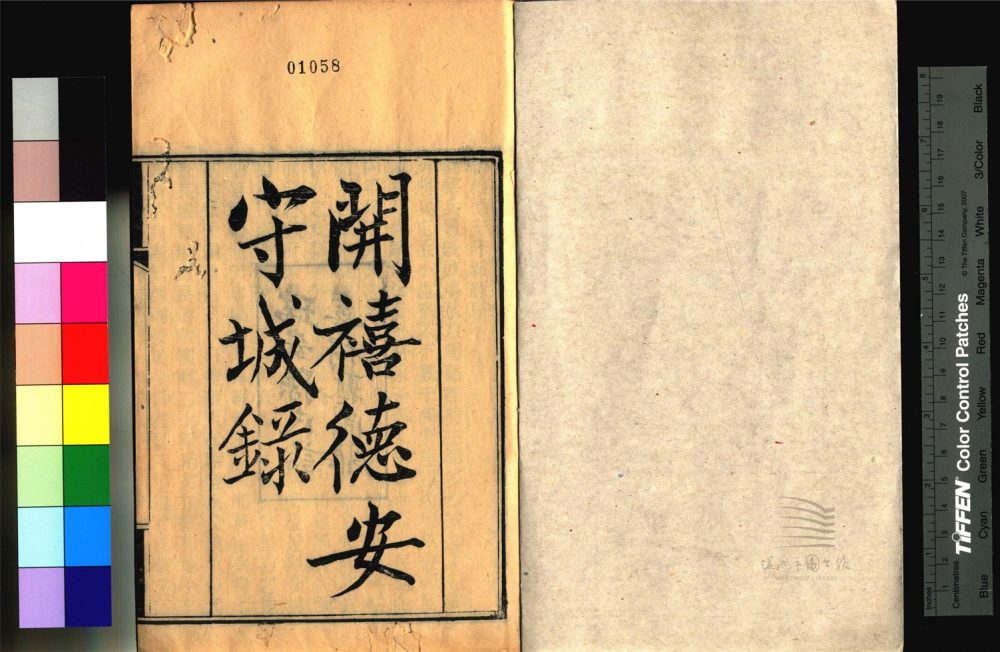 01058
開禧德安
守城錄
温州市图书馆
WENZHOU LIBRARY
Inches
Centimetres
TIFFEN Color Control Patches
© The Tiffen Company, 2007
Blue
Cyan
Green
Yellow
Red
Magenta
White
3/Color
Black
1
2
3
4
5
6
7
8
1
2
3
4
5
6
7
8
9
10
11
12
13
14
15
16
17
18
19